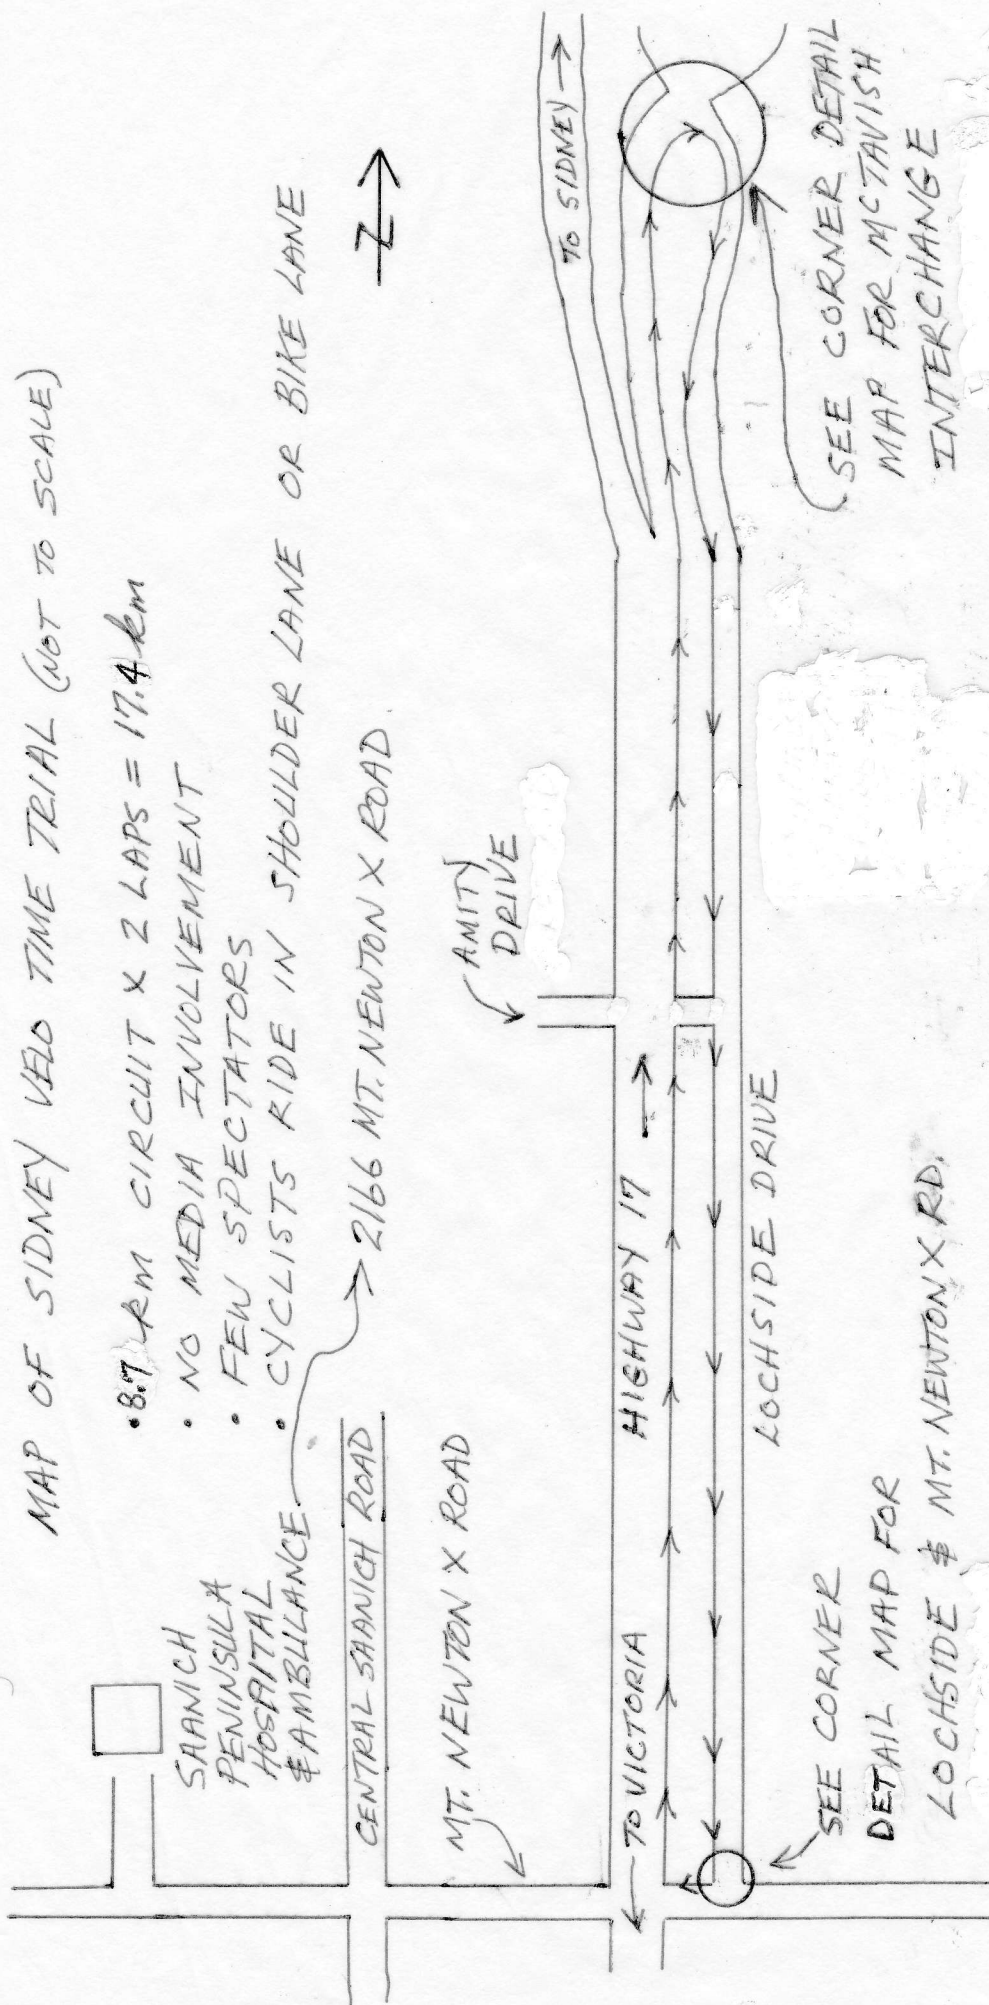 MAP OF SIDNEY VELO TIME TRIAL (NOT TO SCALE)
• 8.7 km CIRCUIT X 2 LAPS = 17.4 km
• NO MEDIA INVOLVEMENT
• FEW SPECTATORS
• CYCLISTS RIDE IN SHOULDER LANE OR BIKE LANE
SAANICH
PENINSULA
HOSPITAL
& AMBULANCE
2166 MT. NEWTON X ROAD
N
CENTRAL SAANICH ROAD
MT. NEWTON X ROAD
AMITY
DRIVE
TO SIDNEY
TO VICTORIA
HIGHWAY 17
LOCHSIDE DRIVE
SEE CORNER DETAIL
MAP FOR MCTAVISH
INTERCHANGE
SEE CORNER
DETAIL MAP FOR
LOCHSIDE & MT. NEWTON X RD.